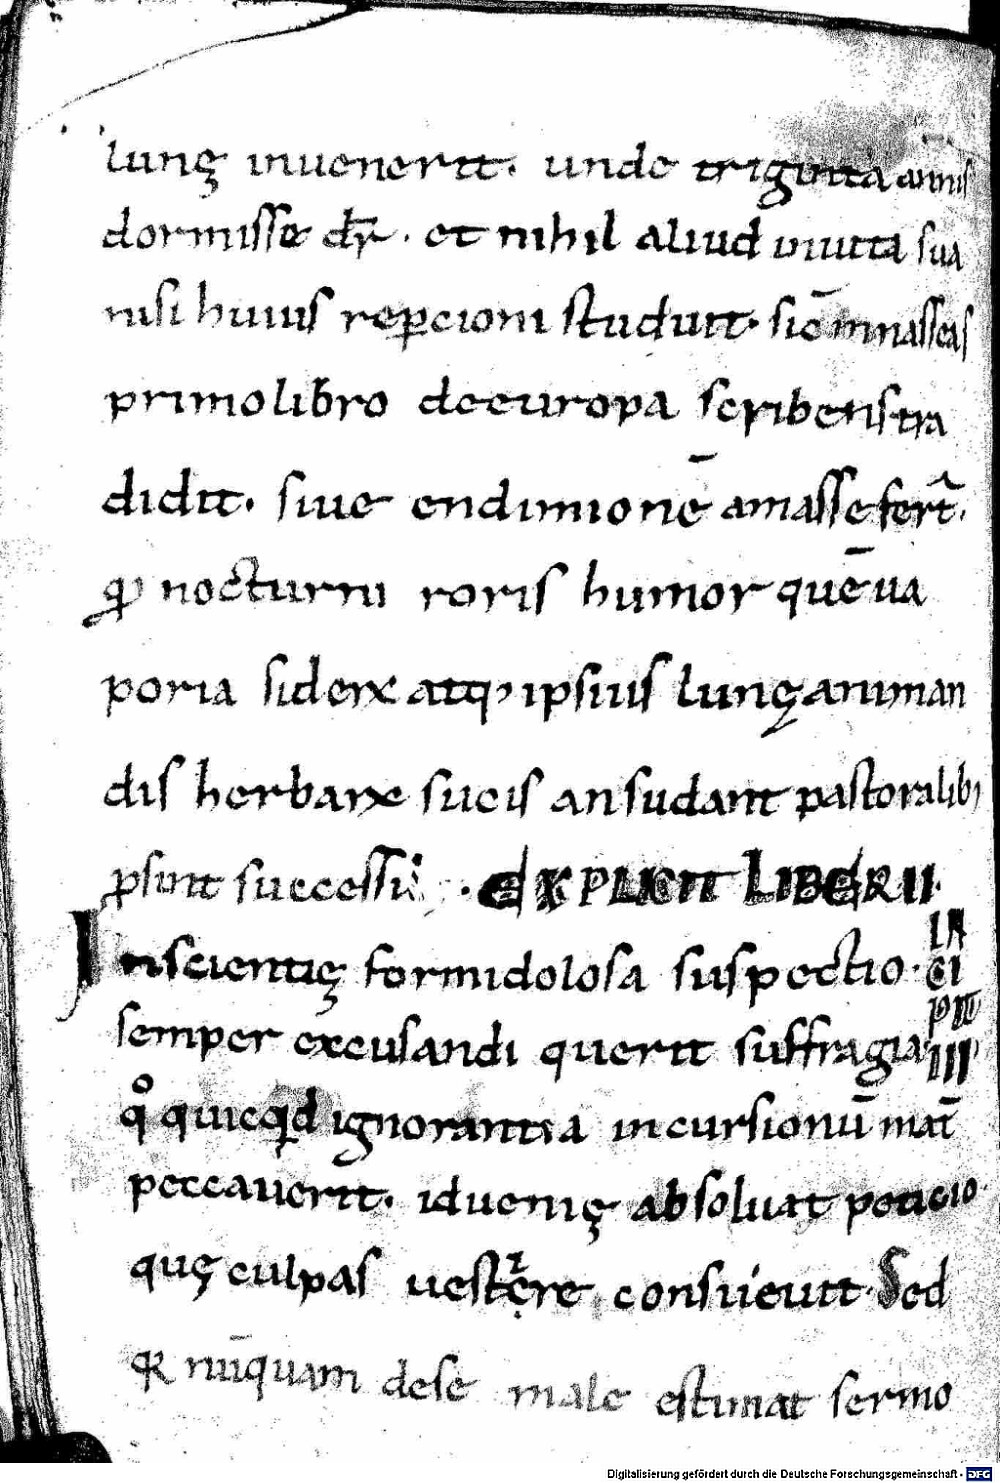 lunę inuenerit. unde triginta annis
dormisse dr̄. et nihil aliud inuita sua
nisi huius repcioni studuit. sic̄ mnasseas
primolibro deeuropa scribens tra
didit. siue endimionē amasse fert̄.
qđ nocturni roris humor quē ua
poria siderꝝ atq; ipsius lunę animan
dis herbarꝝ sucis ansudant pastoralib;
ꝓsint successib;. EXPLICIT LIBER II.
Inscientię formidolosa suspectio. IN
CI
semper excusandi querit suffragia. PIT
III
qͦ quicqd ignorantia incursionū mat̄
peccauerit. id uenię absoluat peticio
quę culpas uestr̄ere consueuit. Sed
qꝛ nūquam de se male estimat sermo
Digitalisierung gefördert durch die Deutsche Forschungsgemeinschaft - DFG